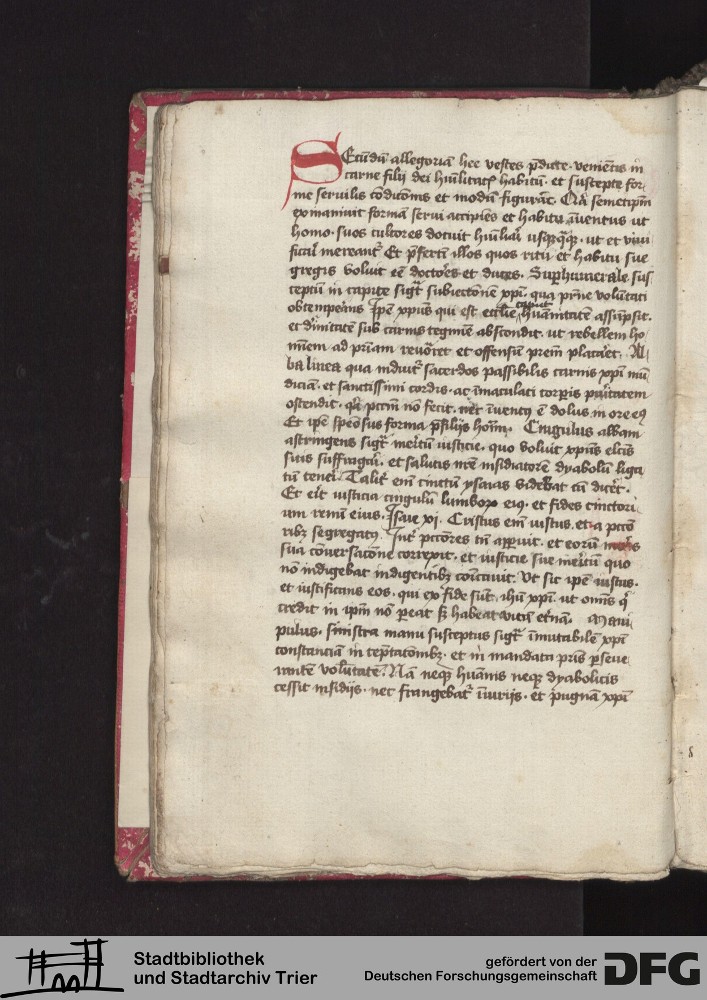 Secūdū allegoriā hee vestes p̄dicte · venientis in
carne filij dei hūilitatꝭ habitū · et suscepte for-
me servilis cōdicōnis et modiā figurāt · Nā semetip̄m
exinanivit formā servi accipiēs et habitu īuentus ut
homo · suos cultores docuit hūiliari usq;q̄q; · ut et vivi
ficari mereant᷑ Et p̄fert̄i illos quos ritu et habitu sue
gregis voluit eē doctores et duces · Sup̄humerale sus
ceptū in capite sigt᷑ subiectionē xp̄i · qua p̄rne volūtati
obtemperās Ip̄e xp̄ianus qui est eccl̄ie caput hūanitatē assūpsit ·
et diuītatē sub carnis tegmine abscondit · ut rebellem ho
minem ad p̄riam revocaret et offensū prem̄ placaret · Al-
ba linea qua induit᷑ sacerdos passibilis carnis xp̄i mū
diciam · et sanctissimi cordis · ac īmaculati corporis puritatem
ostendit · q̄a pctm̄ nō fecit · nec īuentus ē dolus in ore eꝯ
Et ip̄e speōsus forma p̄ filijs hoīm · Cingulus albam
astringens sigt᷑ meritū iusticie · quo voluit xp̄ianus elcīs
suis suffragari · et salutis nr̄e insidiatorē dyabolū liga
tū teneri · Talit᷑ em̄ cinctū ysaias videbat cū dicer̄t ·
Et erit iusticia cingulū lumboꝝ eiꝯ · et fides cinctori
um renū eius · Isaie xi · Cristus em̄ iustus · et a pctō
ribꝫ segregatꝯ · Int᷑ pctōres tn̄ apparuit · et eorū mores
sua cōversatōne correxit · et iusticie sue meritū quo
nō indigebat indigentibꝫ cōmunicavit · Ut sit ip̄e iustus ·
et iustificans eos · qui ex fide sūt · ihū xp̄i · ut om̄is q̄
credit in ip̄m nō pereat sꝫ habeat vitā et̄nā · Mani
pulus · sinistra manu susceptus sigt᷑ īmutabilē xp̄i
constanciam in tēptatōnibꝫ · et in mandata pris̄ perseve
rantē volūtatē · Nā neqꝫ hūanis neqꝫ dyabolicis
cessit insidijs · nec frangebat᷑ īiurijs · et pugnam xp̄i
8
Stadtbibliothek
und Stadtarchiv Trier
gefördert von der
Deutschen Forschungsgemeinschaft
DFG